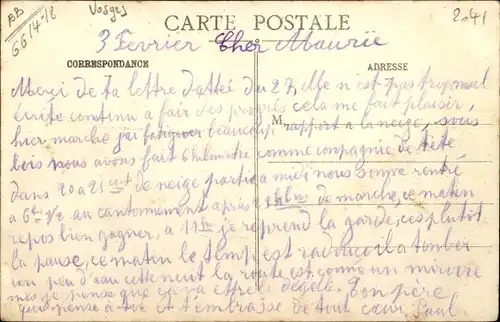 BB
6614-18
Vosges
2041
CARTE POSTALE
3 Fevrier Cher Maurice
CORRESPONDANCE
ADRESSE
Merci de ta lettre dattée du 27, elle n'est pas trop mal
écrite continu a fair des progrès cela me fait plaisir,
M
hier marche j'ai fatiguer beaucoup rapport a la neige, sous
bois nous avons fait 6 kilomètre comme compagnie de tête
dans 20 a 25 cent de neige partis a midi nous somme rentré
a 6h 1/2 au cantonnement après de marche, ce matin
repos bien gagner, a 11h je reprend la garde, ces plutit
la pause, ce matin le temp est radouci il a tomber
un peu d'eau cette nuit la route est comme un miroire
mes je pense que ça va etre le dégele. Ton père
qui pense à toi et t'embrasse de tout cœur. Paul.